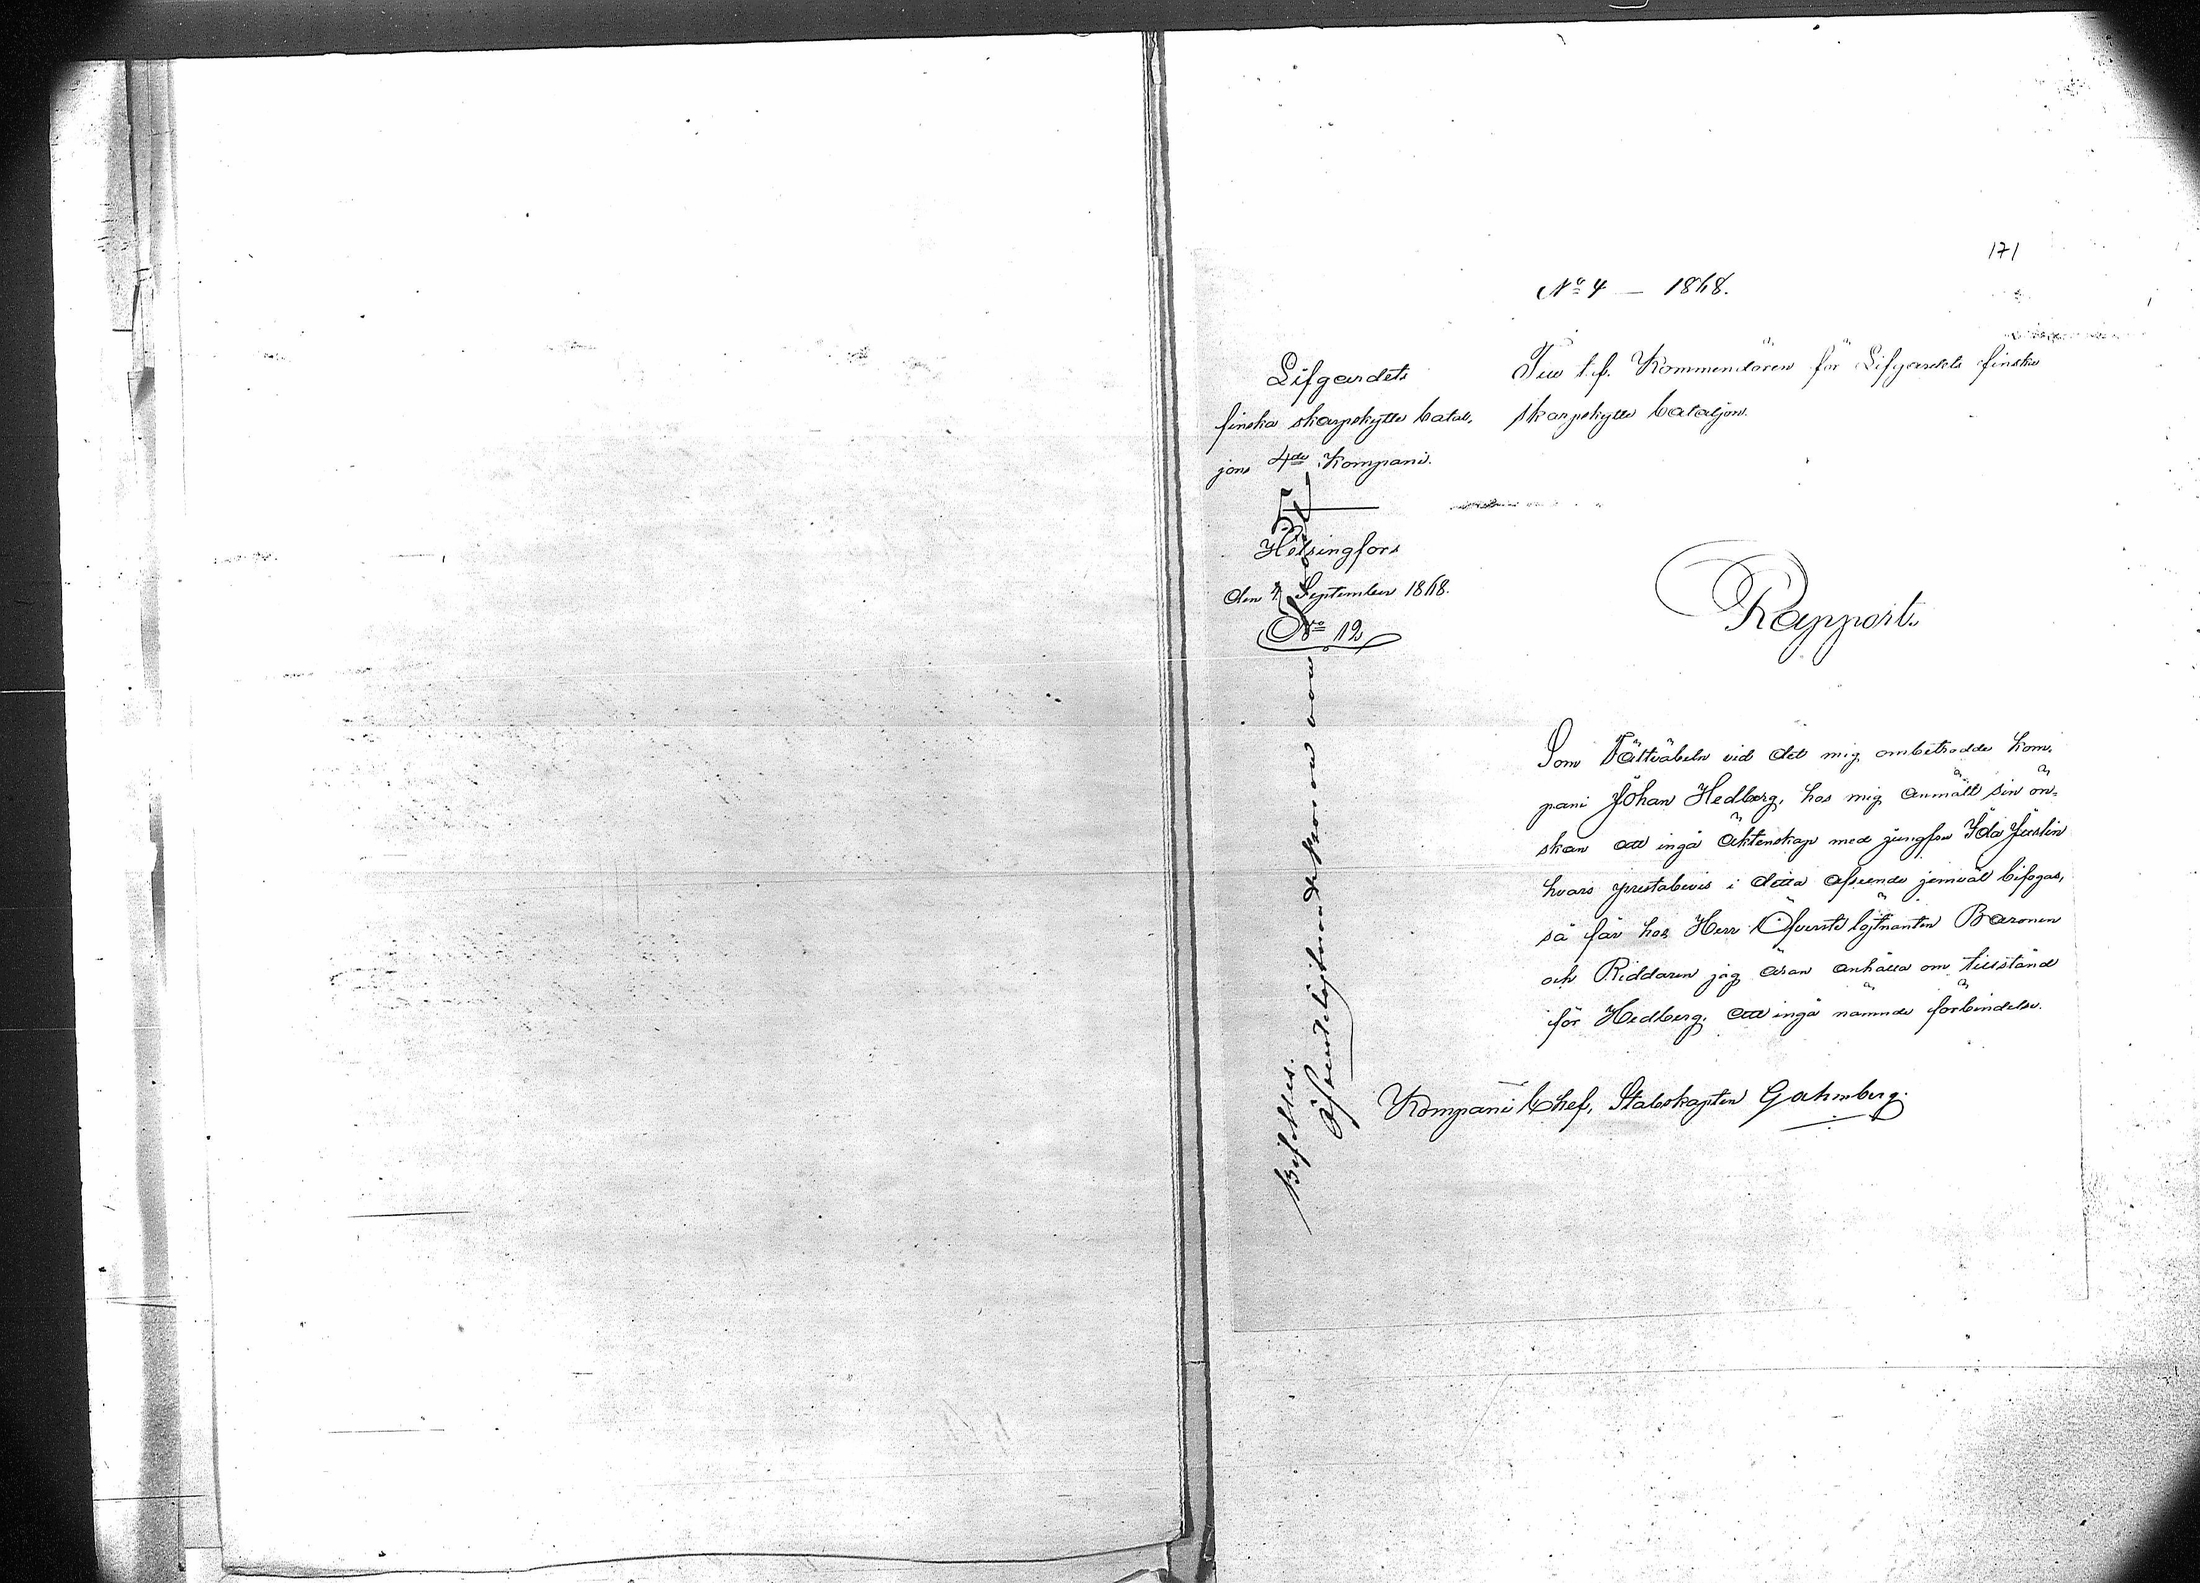 171
No 4 — 1868.
Lifgardets
finska skarpskytte batal-
jons 4de Kompani.
Helsingfors
den 4 September 1868.
No 12
Till t.f. Kommendören för Lifgardets finska
skarpskytte bataljon.
Rapport.
Som Fältväbeln vid det mig ombetrodda kom-
pani Johan Hedberg, hos mig anmält sin ön-
skan att ingå äktenskap med jungfru Ida Juslin
hvars prestabevis i detta afseende jemväl bifogas,
så får hos Herr Öfverstelöjtnanten Baronen
och Riddaren jag äran anhålla om tillstånd
för Hedberg att ingå nämnde förbindelse.
Kompani Chef, Stabskapten Gahmberg.
Bifalles.
Öfverstelöjtnant